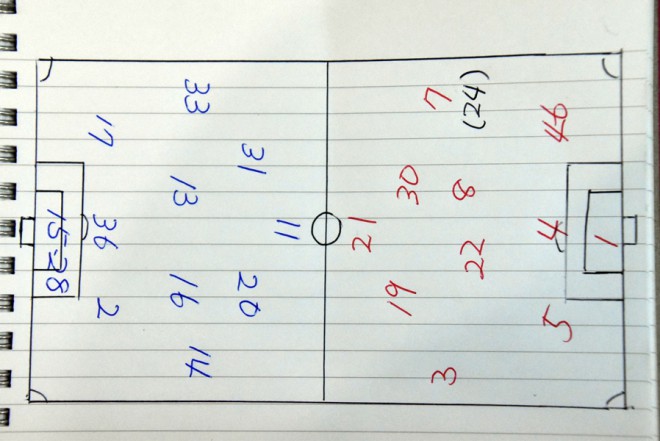 1
46 4 5
(24) 8 22
7 30 19 3
21
11
31 20
33 13 16 14
17 36 2
15-28